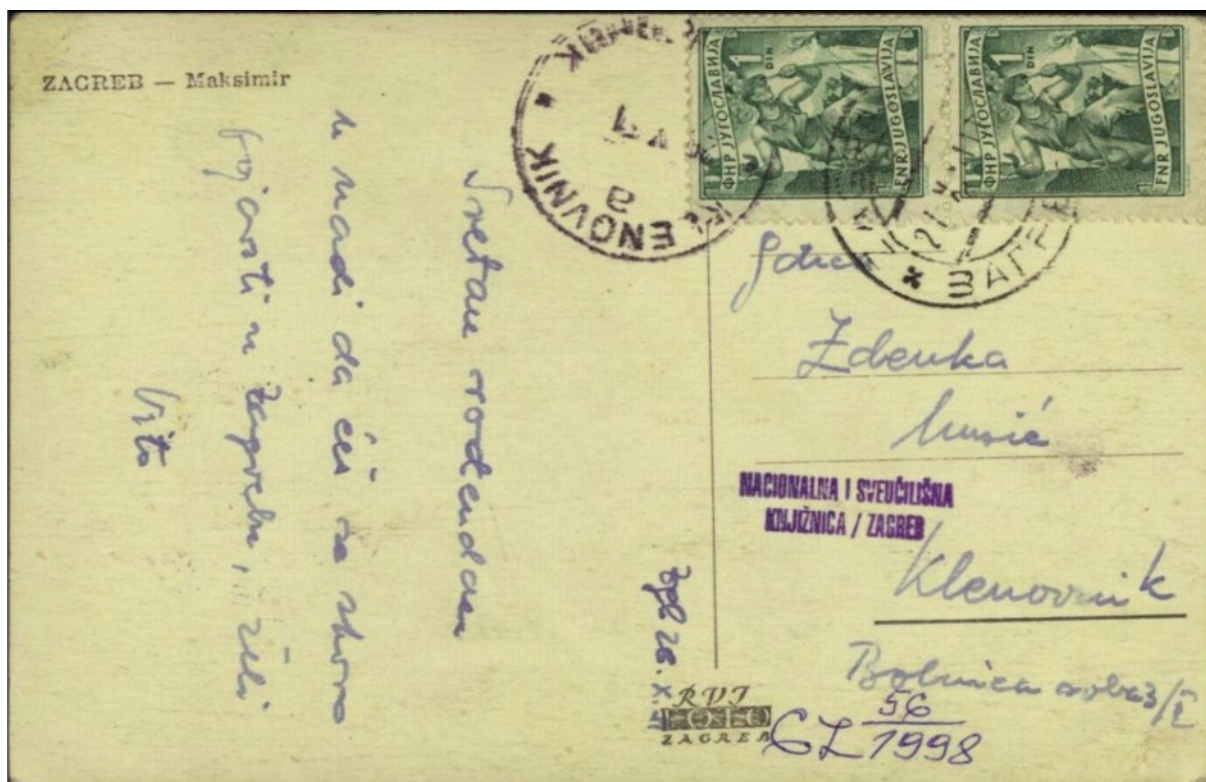 ZAGREB — Maksimir
Sretan rođendan
u nadi da ćeš se skoro
pojaviti u Zagrebu, želi
Vito
KLENOVNIK
a
ФНР ЈУГОСЛАВИЈА
1
DIN
FNR JUGOSLAVIJA
ФНР ЈУГОСЛАВИЈА
1
DIN
FNR JUGOSLAVIJA
ЗАГРЕБ
Zdenka
Musić
NACIONALNA I SVEUČILIŠNA
KNJIŽNICA / ZAGREB
Klenovnik
Bolnica soba 3/I
Zgb 26. X.
RVI
FOTO
ZAGREB
56
1998